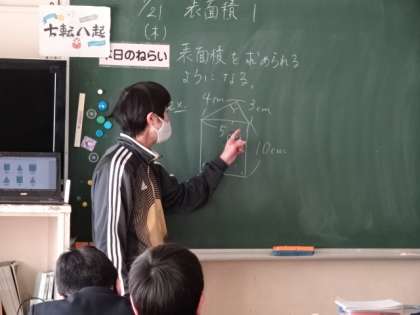 七転八起
/21
(木)
表面積 1
本日のねらい
表面積を求められる
ようになる。
ex.
4cm
3cm
5
10cm